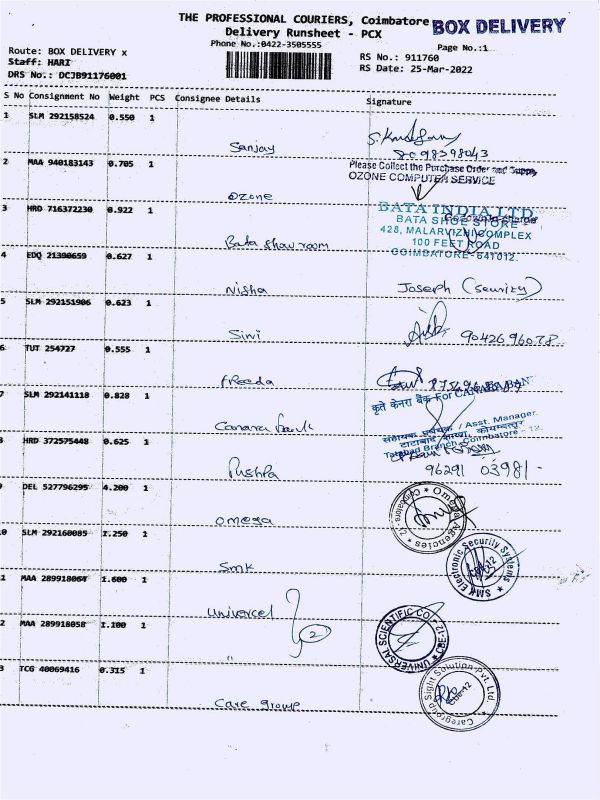 THE PROFESSIONAL COURIERS, Coimbatore
BOX DELIVERY
Delivery Runsheet - PCX
Phone No.:0422-3505555
Page No.:1
Route: BOX DELIVERY x
RS No.: 911760
Staff: HARI
RS Date: 25-Mar-2022
DRS No.: DCJB91176001
S No Consignment No Weight PCS Consignee Details Signature
1 SLM 292158524 0.550 1
Sanjay
8098398043
2 MAA 940183143 0.705 1
Please Collect the Purchase Order and Supply
OZONE COMPUTER SERVICE
Ozone
3 HRD 716372230 0.922 1
BATA INDIA LTD
BATA SHOE STORE
428, MALARVIZHI COMPLEX
100 FEET ROAD
COIMBATORE-641012.
Bata show room
4 EDQ 21390659 0.627 1
Nisha
Joseph (security)
5 SLM 292151906 0.623 1
Sini
9042696078
6 TUT 254727 0.555 1
Freeda
7 SLM 292141118 0.828 1
कृते केनरा बैंक For CANARA BANK
Canara bank
/ Asst. Manager
Tatabad Branch, Coimbatore - 12.
8 HRD 372575448 0.625 1
Pushpa
96291 03981
9 DEL 527796295 4.200 1
Omega
Omega Agencies
Coimbatore - 12
0 SLM 292160085 1.250 1
Smk
SMK Electronic Security Systems
CBE-12
1 MAA 289918064 1.600 1
Univercel
2 MAA 289918058 1.100 1
2
"
UNIVERSAL SCIENTIFIC CO
CBE-12
3 TCG 40069416 0.315 1
Care group
Caregroup Sight Solution Pvt. Ltd.
CBE-12